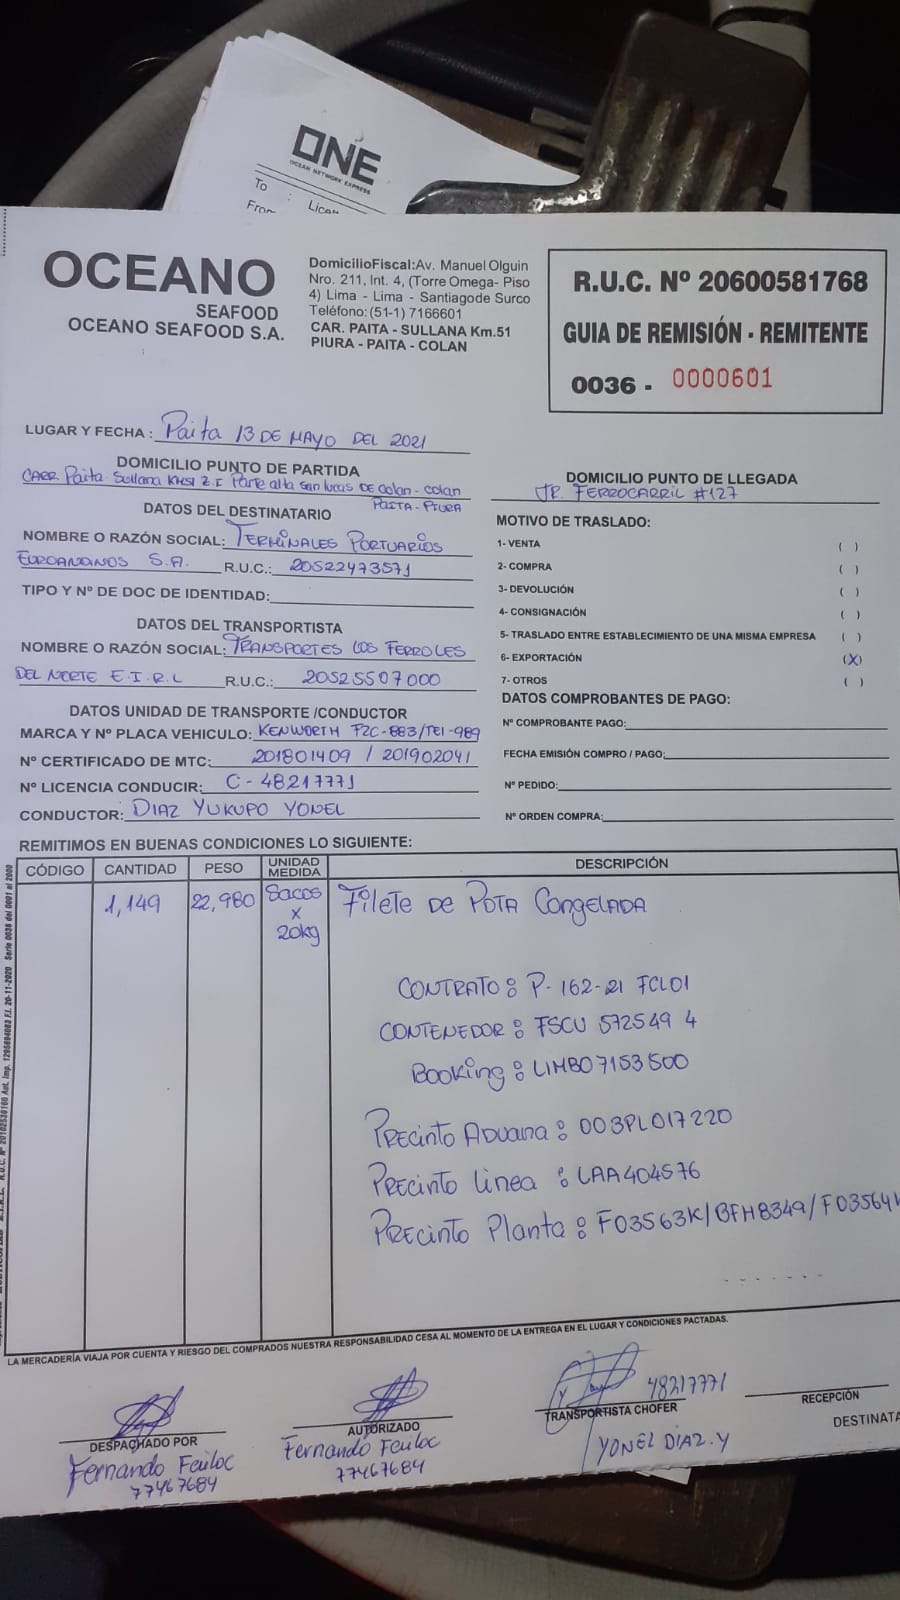 ONE
OCEAN NETWORK EXPRESS
To :
From
OCEANO
SEAFOOD
OCEANO SEAFOOD S.A.
DomicilioFiscal:Av. Manuel Olguin
Nro. 211, Int. 4, (Torre Omega- Piso
4) Lima - Lima - Santiagode Surco
Teléfono:(51-1) 7166601
CAR. PAITA - SULLANA Km.51
PIURA - PAITA - COLAN
R.U.C. Nº 20600581768
GUIA DE REMISIÓN - REMITENTE
0036 - 0000601
LUGAR Y FECHA : Paita 13 DE MAYO DEL 2021
DOMICILIO PUNTO DE PARTIDA
CARR. Paita Sullana KM51 Z.I Parte alta San Lucas DE Colan - Colan
PAITA - PIURA
DOMICILIO PUNTO DE LLEGADA
JR. FERROCARRIL #127
DATOS DEL DESTINATARIO
NOMBRE O RAZÓN SOCIAL: TERMINALES PORTUARIOS
EUROANDINOS S.A. R.U.C.: 20522473571
TIPO Y Nº DE DOC DE IDENTIDAD:
DATOS DEL TRANSPORTISTA
NOMBRE O RAZÓN SOCIAL: TRANSPORTES LOS FERROLES
DEL NORTE E.I.R.L R.U.C.: 20525507000
DATOS UNIDAD DE TRANSPORTE /CONDUCTOR
MARCA Y Nº PLACA VEHICULO: KENWORTH
Nº CERTIFICADO DE MTC: 201801409 / 201902041
Nº LICENCIA CONDUCIR: C - 48217771
CONDUCTOR: DIAZ YUKUPO YONEL
MOTIVO DE TRASLADO:
1- VENTA ( )
2- COMPRA ( )
3- DEVOLUCIÓN ( )
4- CONSIGNACIÓN ( )
5- TRASLADO ENTRE ESTABLECIMIENTO DE UNA MISMA EMPRESA ( )
6- EXPORTACIÓN (X)
7- OTROS ( )
DATOS COMPROBANTES DE PAGO:
Nº COMPROBANTE PAGO:
FECHA EMISIÓN COMPRO / PAGO:
Nº PEDIDO:
Nº ORDEN COMPRA:
REMITIMOS EN BUENAS CONDICIONES LO SIGUIENTE:
CÓDIGO CANTIDAD PESO UNIDAD MEDIDA DESCRIPCIÓN
1,149 22,980 Sacos x 20kg Filete DE POTA CONGELADA
CONTRATO : P- 162-21 FCL01
CONTENEDOR : FSCU 572549 4
Booking : LIMB07153500
PRECinto ADuana : 003PL017220
PRECinto Linea : LAA404576
PRECinto Planta : F03563K/BFH8349/F03564
LA MERCADERÍA VIAJA POR CUENTA Y RIESGO DEL COMPRADOS NUESTRA RESPONSABILIDAD CESA AL MOMENTO DE LA ENTREGA EN EL LUGAR Y CONDICIONES PACTADAS.
DESPACHADO POR
Fernando Feuloc
77467684
AUTORIZADO
Fernando Feuloc
77467684
48217771
TRANSPORTISTA CHOFER
YONEL DIAZ.Y
RECEPCIÓN
DESTINATA